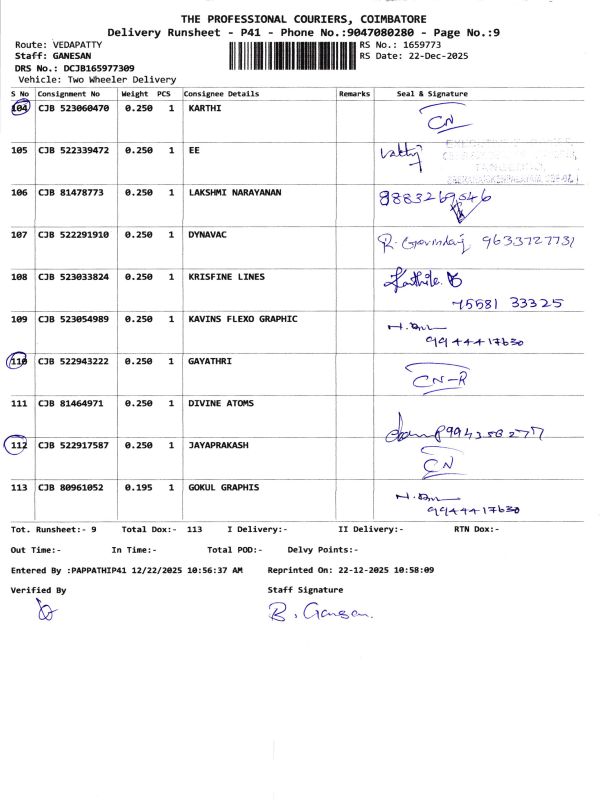 THE PROFESSIONAL COURIERS, COIMBATORE
Delivery Runsheet - P41 - Phone No.:9047080280 - Page No.:9
Route: VEDAPATTY
RS No.: 1659773
Staff: GANESAN
RS Date: 22-Dec-2025
DRS No.: DCJB165977309
Vehicle: Two Wheeler Delivery
S No Consignment No Weight PCS Consignee Details Remarks Seal & Signature
104 CJB 523060470 0.250 1 KARTHI CN
105 CJB 522339472 0.250 1 EE
106 CJB 81478773 0.250 1 LAKSHMI NARAYANAN 9883269546
107 CJB 522291910 0.250 1 DYNAVAC R. Govindaraj 9633727731
108 CJB 523033824 0.250 1 KRISFINE LINES
75581 33325
109 CJB 523054989 0.250 1 KAVINS FLEXO GRAPHIC
9944417630
110 CJB 522943222 0.250 1 GAYATHRI CN-R
111 CJB 81464971 0.250 1 DIVINE ATOMS
112 CJB 522917587 0.250 1 JAYAPRAKASH CN
113 CJB 80961052 0.195 1 GOKUL GRAPHIS
9944417630
Tot. Runsheet:- 9 Total Dox:- 113 I Delivery:- II Delivery:- RTN Dox:-
Out Time:- In Time:- Total POD:- Delvy Points:-
Entered By :PAPPATHIP41 12/22/2025 10:56:37 AM Reprinted On: 22-12-2025 10:58:09
Verified By Staff Signature
B. Ganesan.